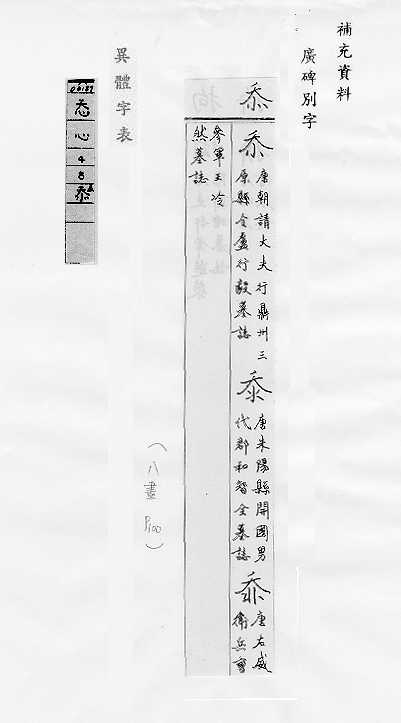 補充資料
廣碑別字
忝
忝 唐朝請大夫行鼎州三
原縣令盧行毅墓誌
忝 唐朱陽縣開國男
代郡和智全墓誌
忝 唐右威
衛兵曹
參軍王冷
然墓誌
(八畫 P100)
異體字表
忝
心
4
8